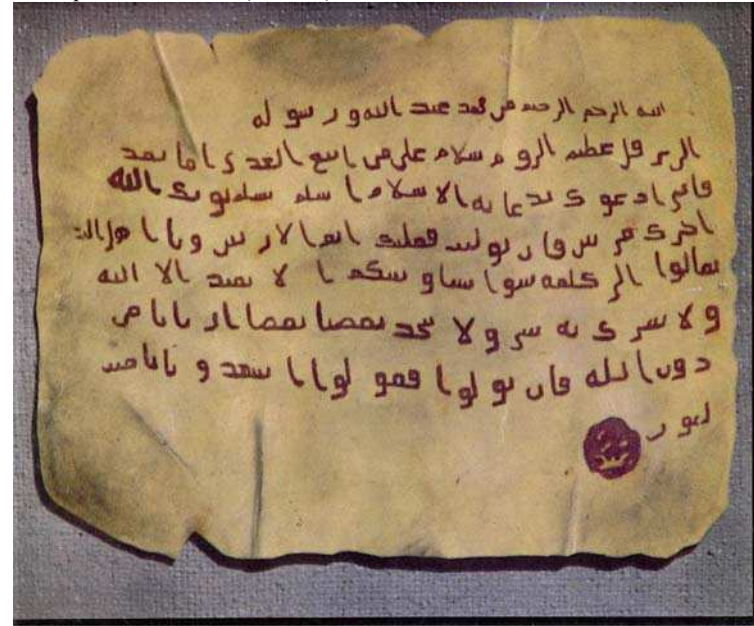 الله الرحمن الرحيم من محمد عبد الله و رسوله
الى هرقل عظيم الروم سلام على من اتبع الهدى اما بعد
فانى ادعوك بدعاية الاسلام اسلم تسلم يوتك الله
اجرك مرتين فان توليت فعليك اثم الاريسين ويا اهل
تعالوا الى كلمة سوا بيننا وبينكم ا لا نعبد الا الله
ولا نشرك به ولا يتخذ بعضنا بعضا اربابا من
دون الله فان تولوا فقولوا اشهدو باننا